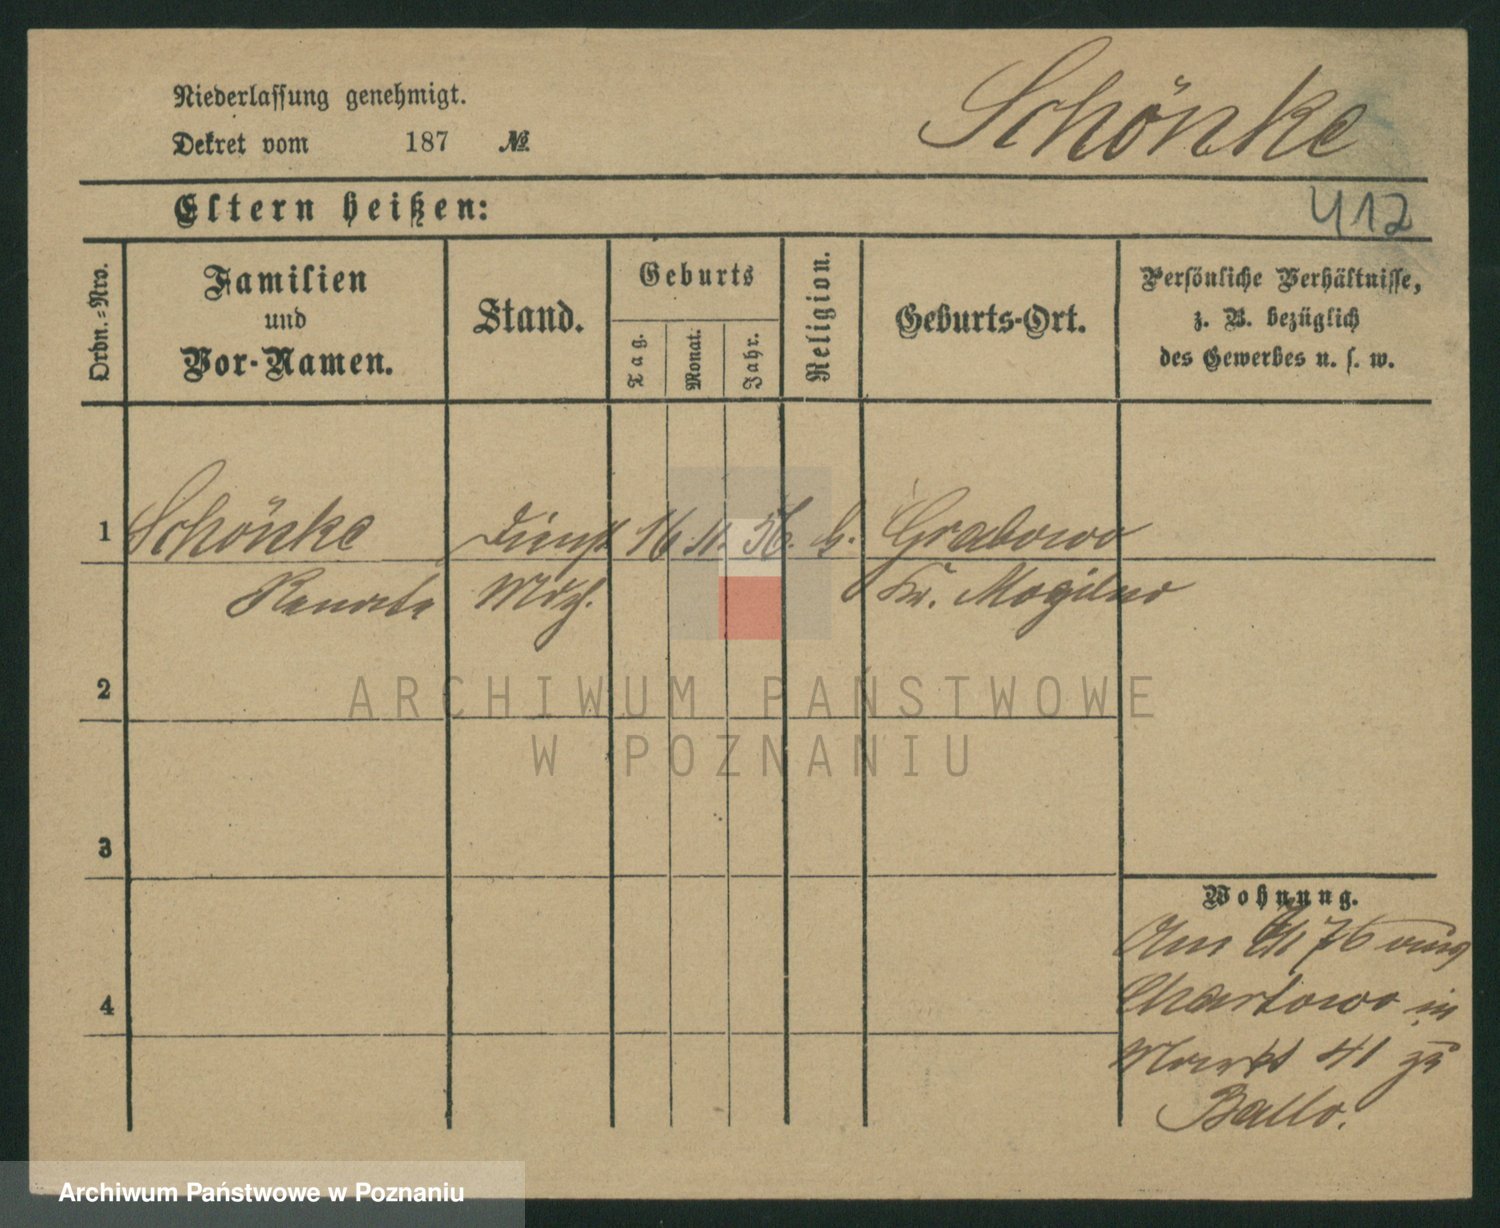 Niederlassung genehmigt.
Dekret vom 187 №
Schönke
Eltern heißen:
412
Ordn.-Nro.
Familien
und
Vor-Namen.
Stand.
Geburts
Tag.
Monat.
Jahr.
Religion.
Geburts-Ort.
Persönliche Verhältnisse,
z. B. bezüglich
des Gewerbes u. s. w.
1 Schönke Dienst 16. 11. 56. Grabowo
Renate Mdch. Kr. Mogilno
2
ARCHIWUM PAŃSTWOWE
W POZNANIU
3
Wohnung.
Am 76
Chartowo in
4
Markt 41 zu
Ballo.
Archiwum Państwowe w Poznaniu